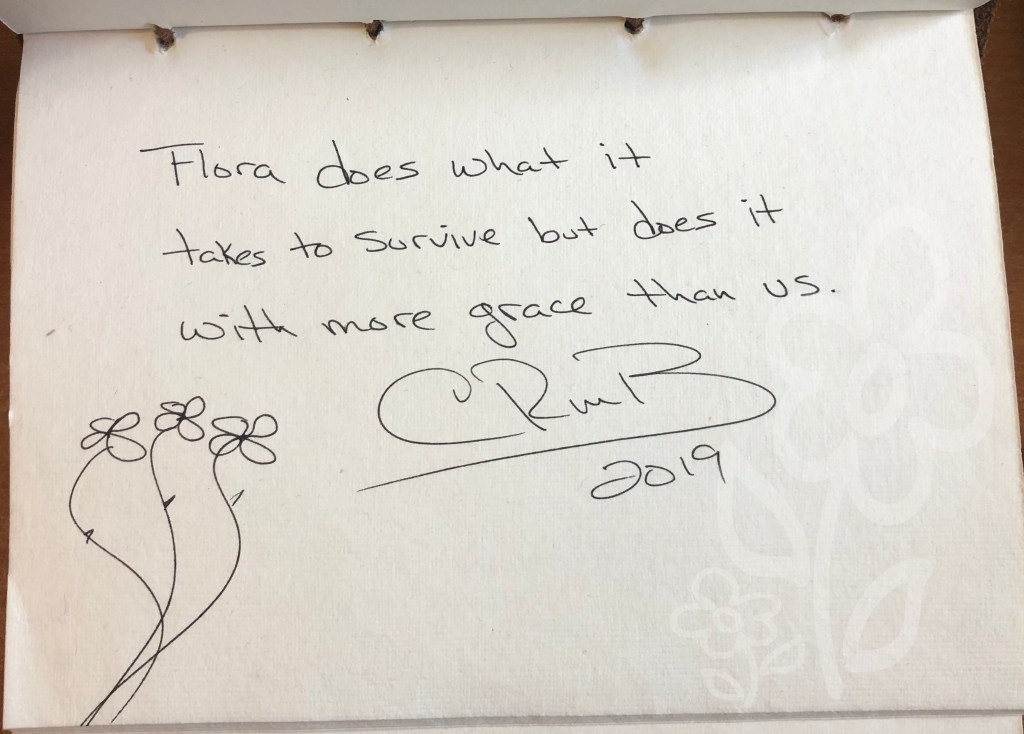 Flora does what it
takes to survive but does it
with more grace than us.
2019